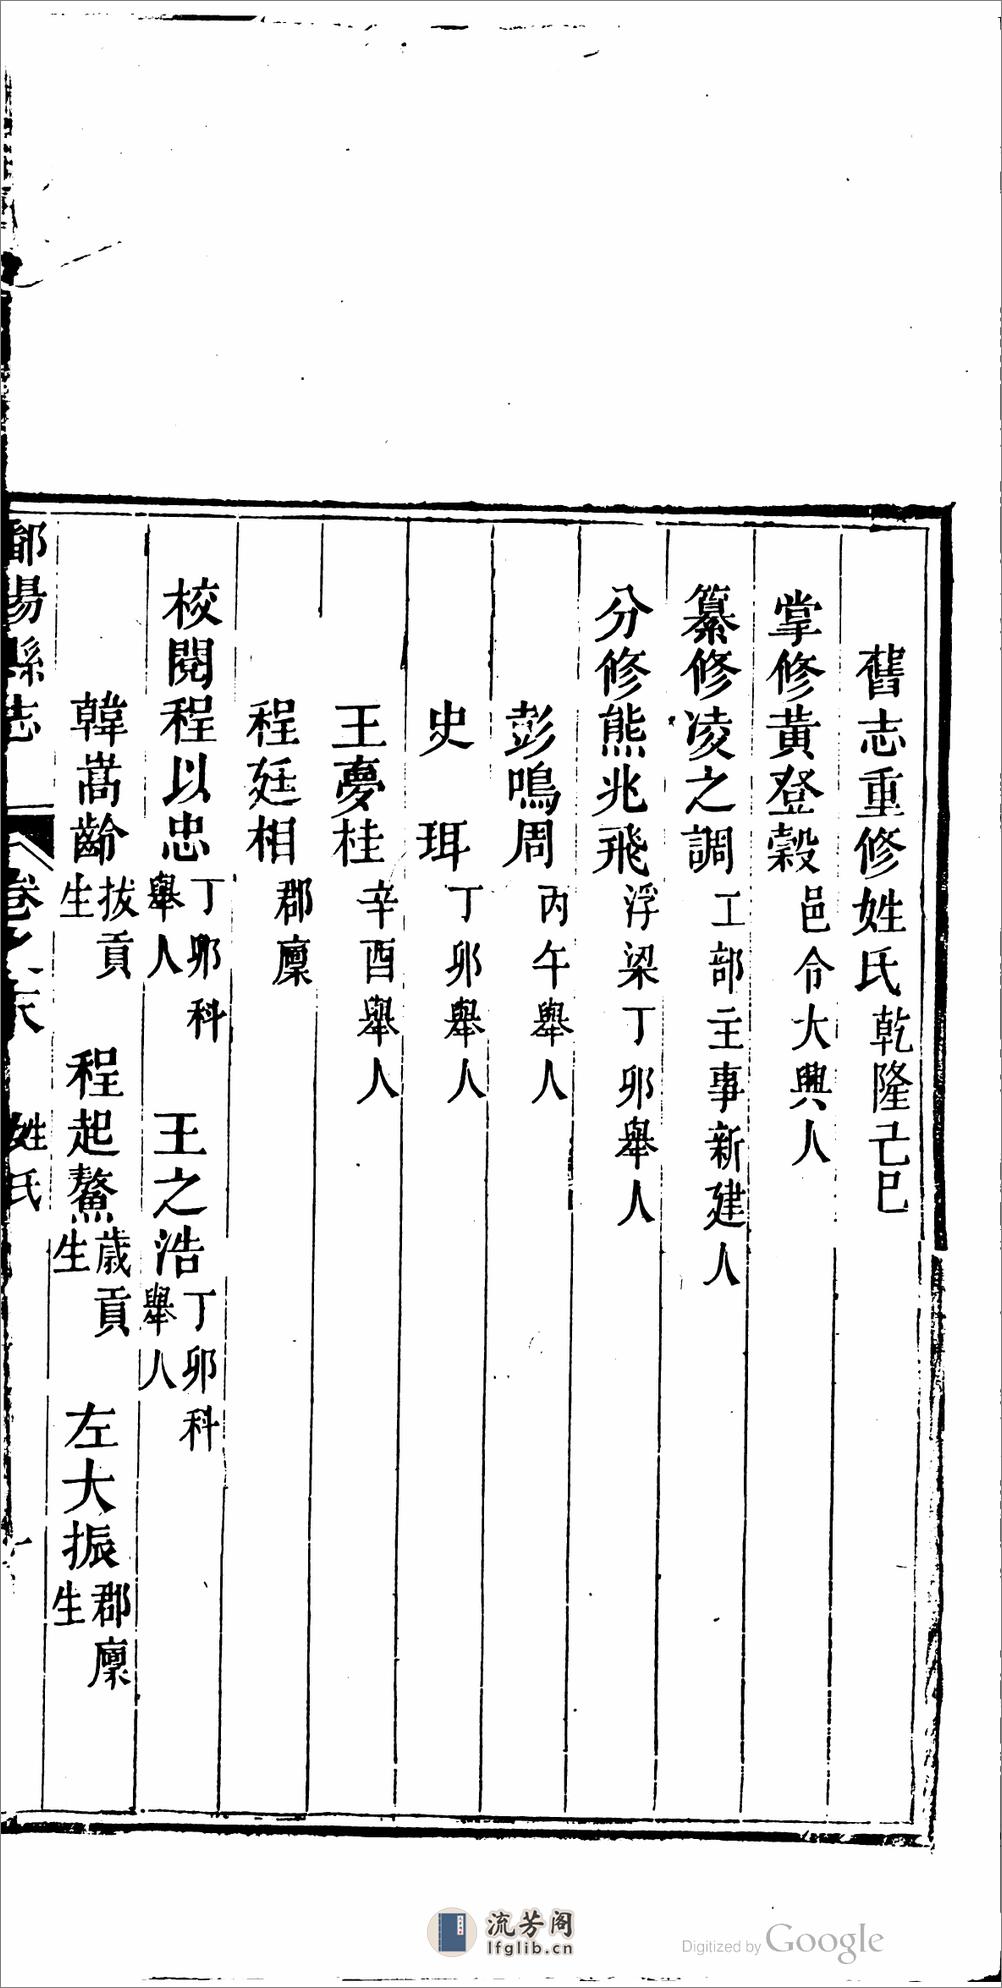 舊志重修姓氏乾隆己巳
掌修黃登穀邑令大興人
纂修凌之調工部主事新建人
分修熊兆飛浮梁丁卯舉人
彭鳴周丙午舉人
史珥丁卯舉人
王夢桂辛酉舉人
程廷相郡廩
校閱程以忠丁卯科舉人 王之浩丁卯科舉人
韓嵩齡拔貢生 程起鰲歲貢生 左大振郡廩生
鄱陽縣志 卷之末 姓氏 一
流芳阁
lfglib.cn
Digitized by Google